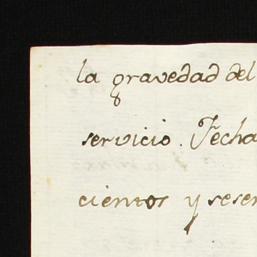 la gravedad del
servicio. Fecha
cientos y sesen